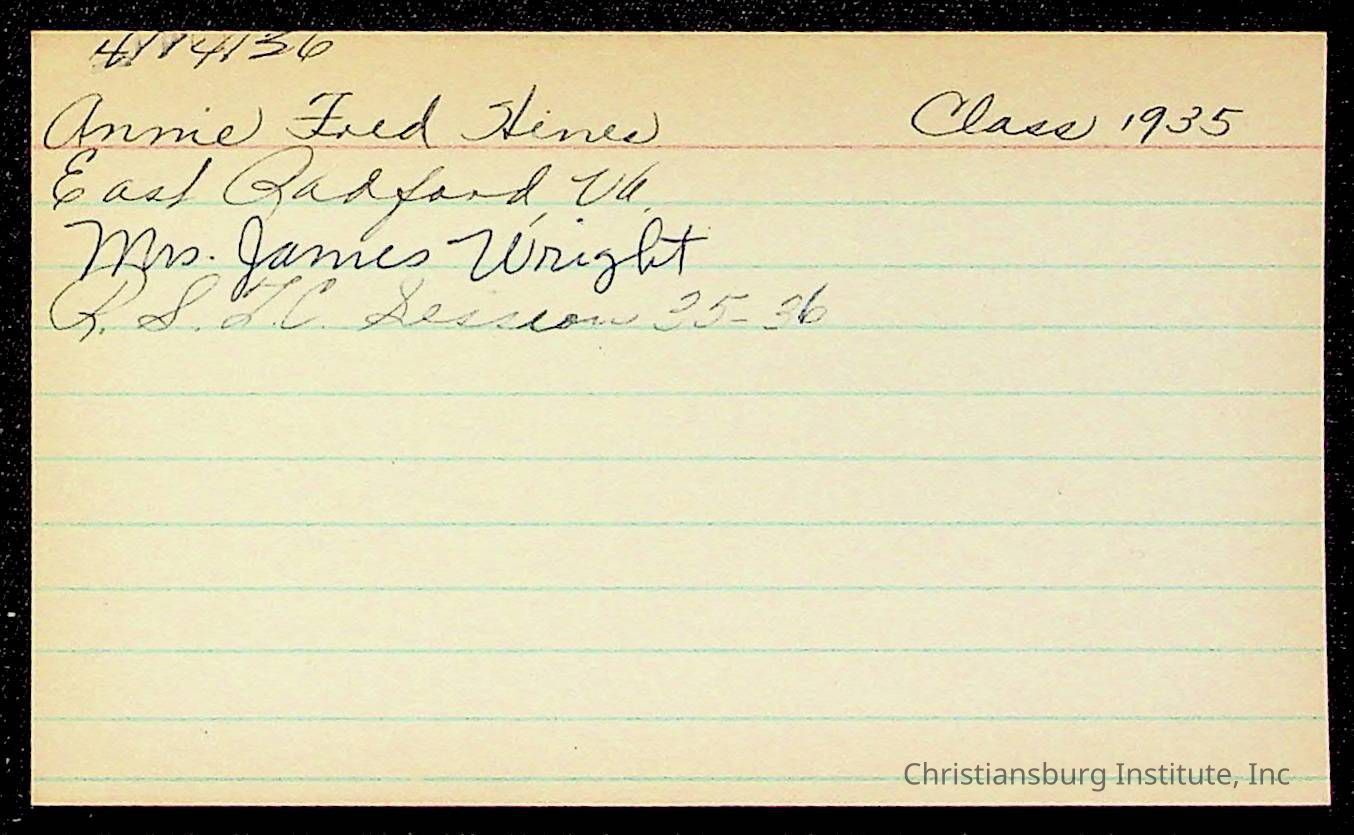 Annie Fred Hines Class 1935
East Radford, Va.
Mrs. James Wright
R. S. T.C. Session 35-36
Christiansburg Institute, Inc